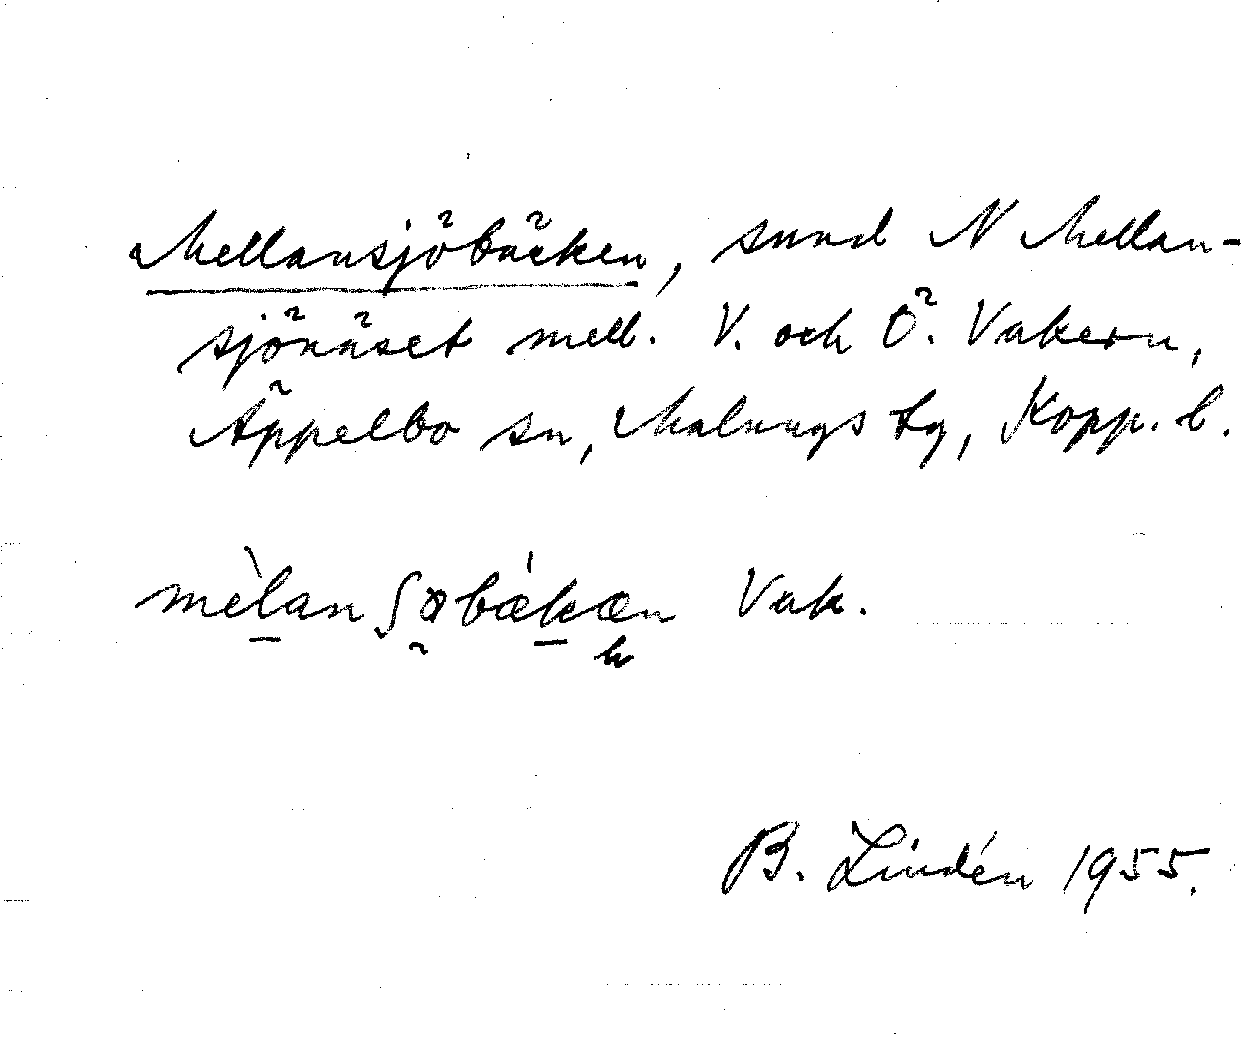 Mellansjöbäcken, sund N Mellan-
sjönäset mell. V. och Ö. Vakern,
Äppelbo sn, Malungs tg, Kopp. l.
mèlanʃøbǽkæn Vak.
B. Lindén 1955.